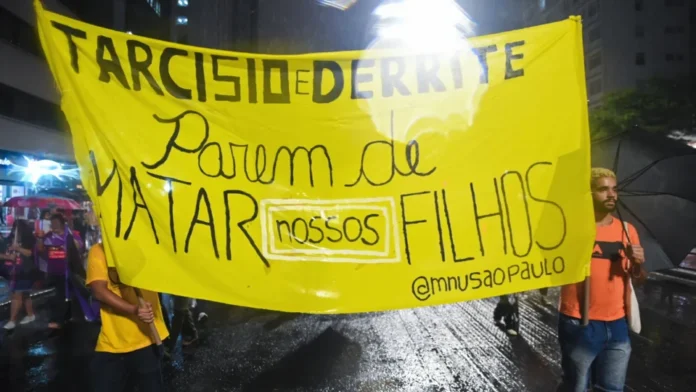 TARCISIO E DERRITE
Parem de
MATAR nossos FILHOS
@mnusaopaulo